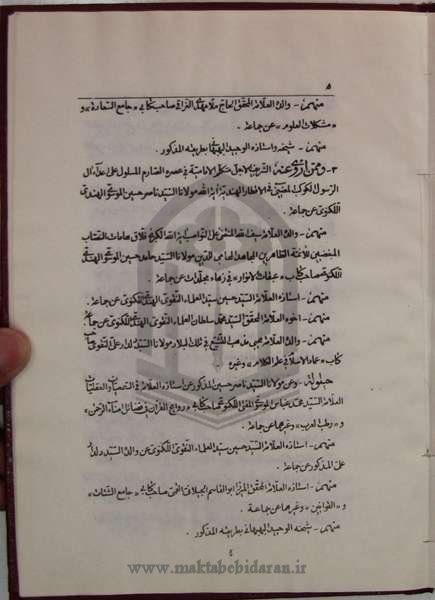 ٥
منهم - والده العلامة المحقق الحاج ملا مهدي النراقي صاحب كتابي «جامع السعادة» و
«مشكلات العلوم» عن جماعة .
منهم - شيخه واستاذه الوحيد البهبهاني بطريقته المذكور .
٣- وممن اروي عنه الامامية في عصره الصارم المسلول على اعداء آل
الرسول في الاقطار الهندية آية الله مولانا السيد ناصر حسين الموسوي الهندي
اللكنوي عن جماعة .
منهم - والده العلامة سيف الله المنتضى على النواصب آية الله الكبرى فلاق هامات النصاب
المبغضين للائمة الطاهرين المجاهد المحامي للدين مولانا السيد حامد حسين الموسوي الهندي
اللكنوي صاحب كتاب «عبقات الانوار» في مجلدات عن جماعة .
منهم - استاذه العلامة السيد حسين سيد العلماء النقوي الهندي اللكنوي عن جماعة .
منهم - اخوه العلامة المحقق السيد محمد سلطان العلماء النقوي الهندي اللكنوي عن جماعة .
منهم - والده العلامة محيي مذهب التشيع في تلك البلاد مولانا السيد دلدار علي النقوي صاحب
كتاب «عماد الاسلام في علم الكلام» وغيره .
حيلولة - وعن مولانا السيد ناصر حسين المذكور عن استاذه العلامة في السمعيات والعقليات
العلامة السيد محمد عباس الموسوي المفتي اللكنوي صاحب كتابي «روايح القرآن في فضائل امناء الرحمن»
و «رطب العرب» وغيرهما عن جماعة .
منهم - استاذه العلامة السيد حسين سيد العلماء النقوي اللكنوي عن والده السيد دلدار
علي المذكور عن جماعة .
منهم - استاذه العلامة المحقق الميرزا ابو القاسم الجيلاني القمي صاحب كتابي «جامع الشتات»
و «القوانين» وغيرهما عن جماعة .
منهم - شيخه الوحيد البهبهاني بطريقته المذكور .
٤
www.maktabebidaran.ir